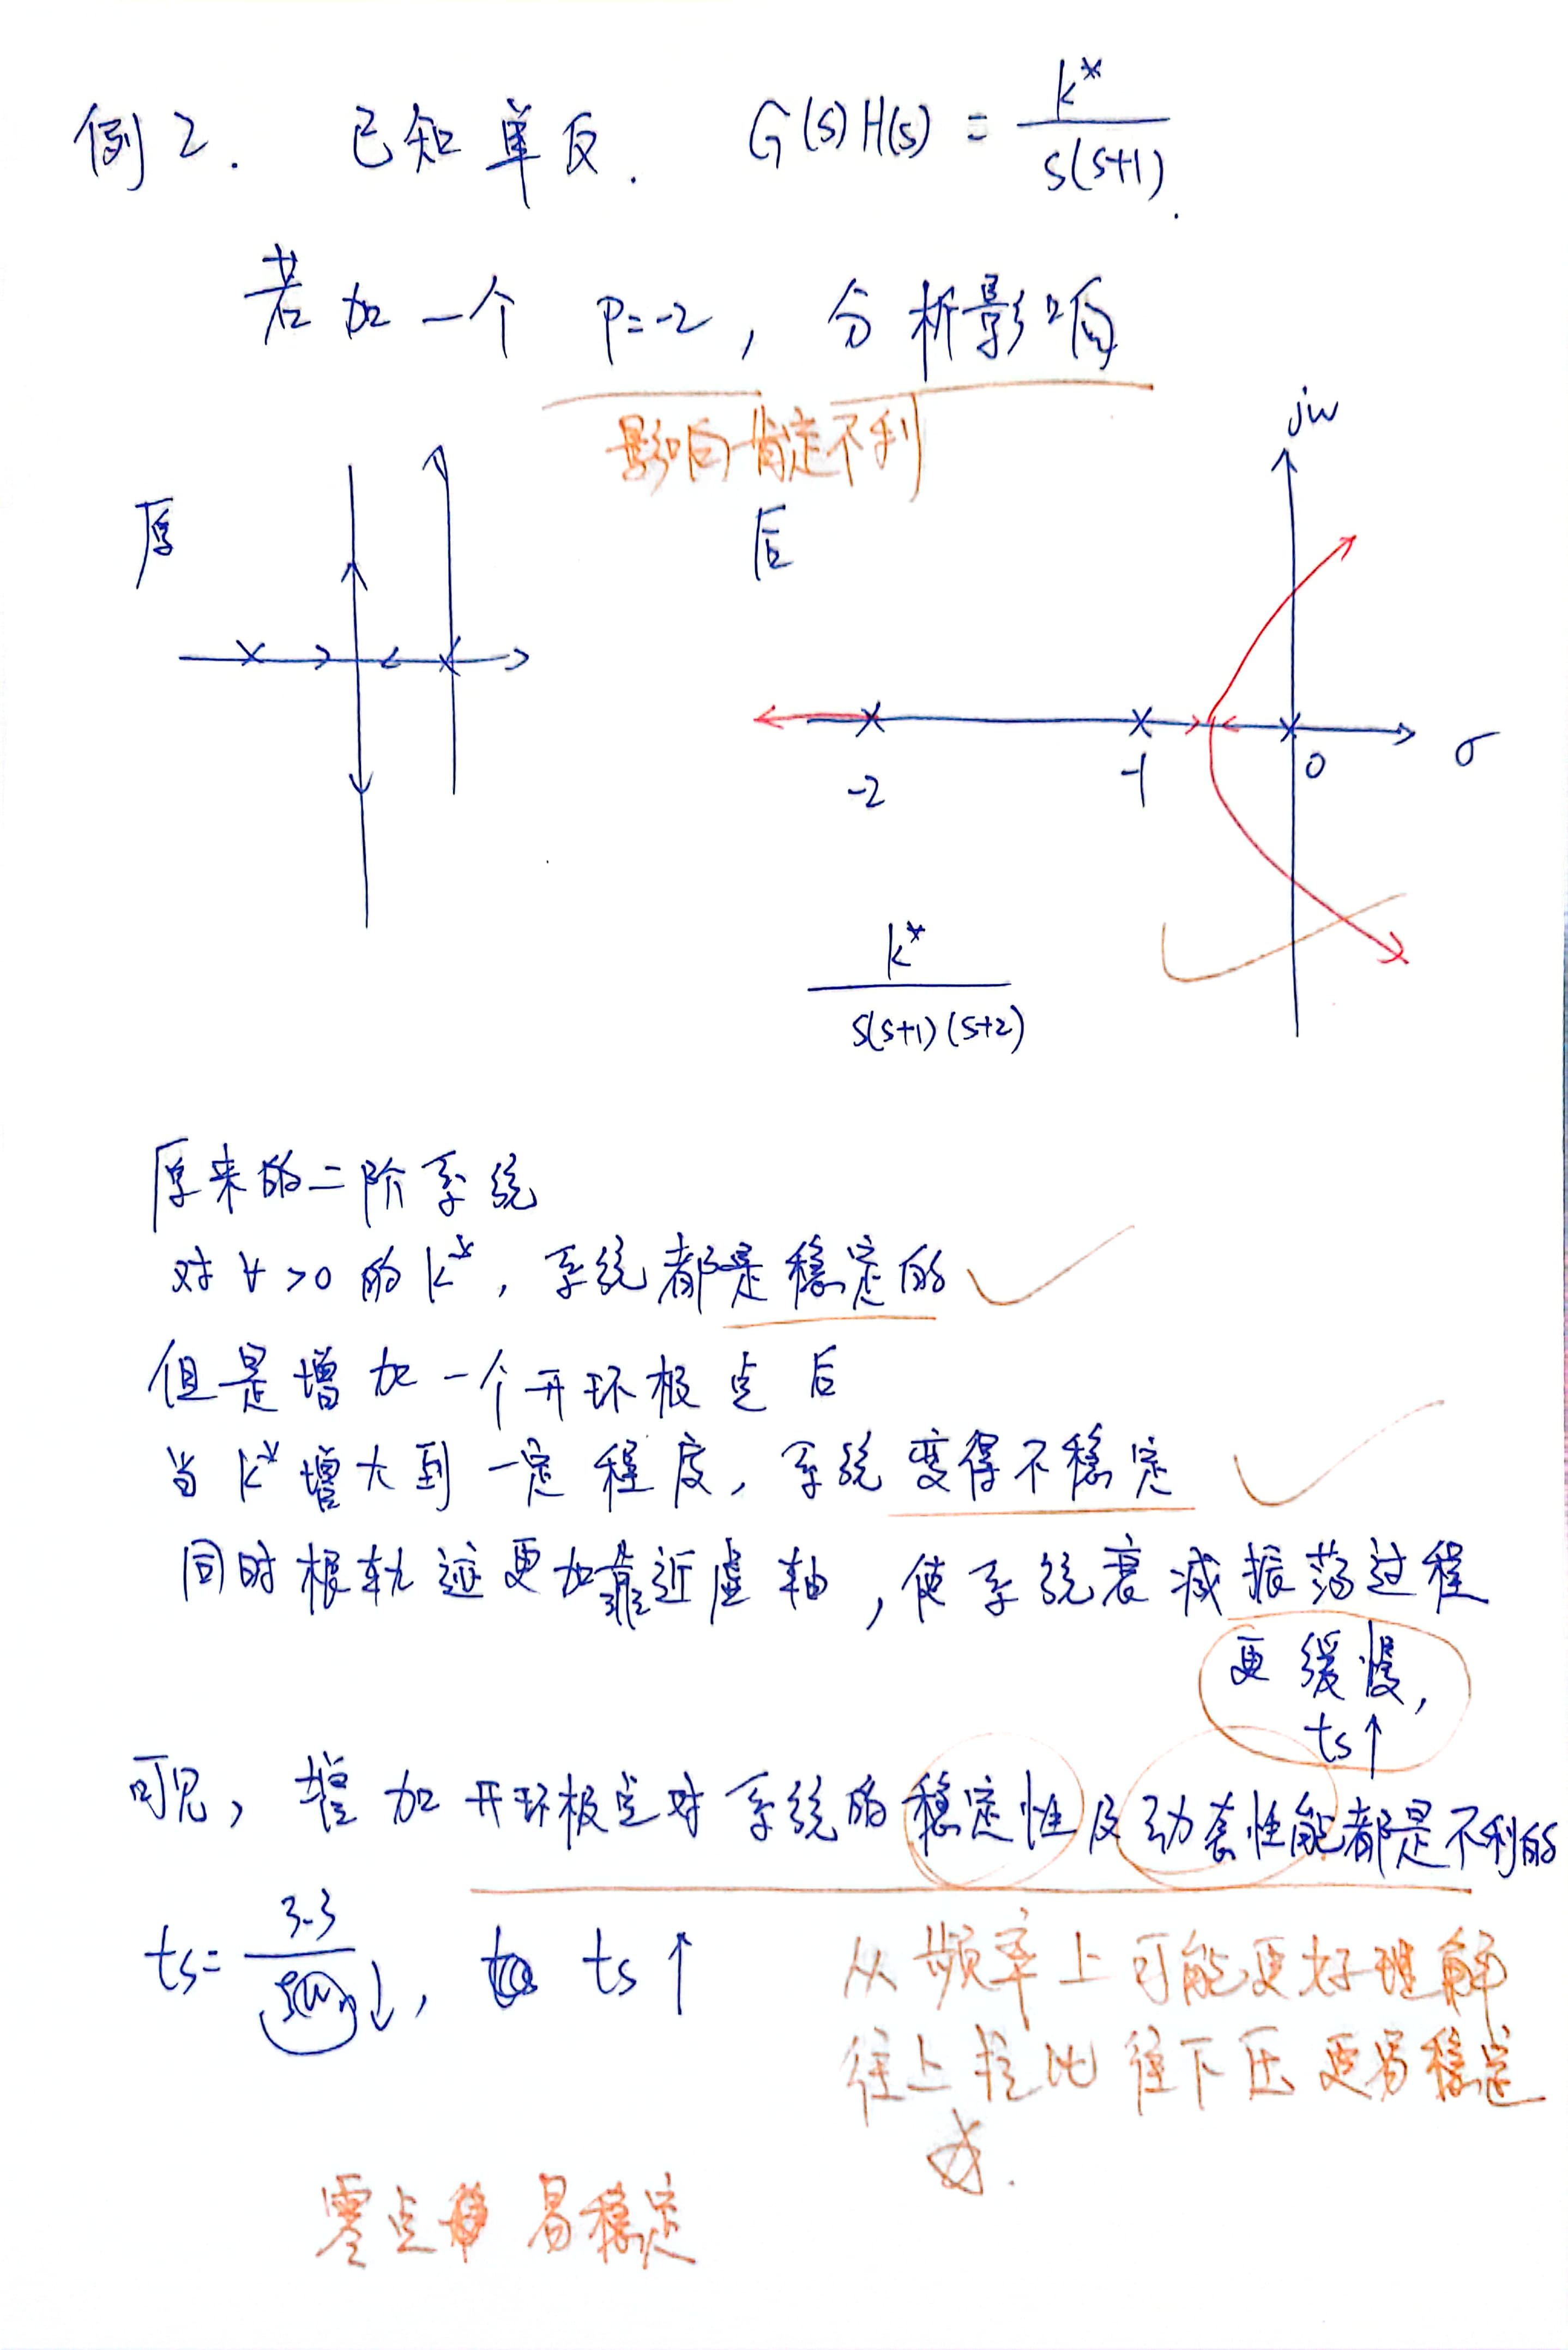 例2. 已知单反. G(s)H(s) = k*/s(s+1).
若加一个 P=-2, 分析影响
影响肯定不利
原
后
jw
-2 -1 0 σ
k*/s(s+1)(s+2)
原来的二阶系统
对∀>0的k*, 系统都是稳定的
但是增加一个开环极点后
当k*增大到一定程度, 系统变得不稳定
同时根轨迹更加靠近虚轴, 使系统衰减振荡过程
更缓慢,
ts↑
可见, 增加开环极点对系统的稳定性及动态性能都是不利的
ts= 3.3/ξωn↓, ts↑
从频率上可能更好理解
往上抬比往下压更易稳定
零点 易稳定